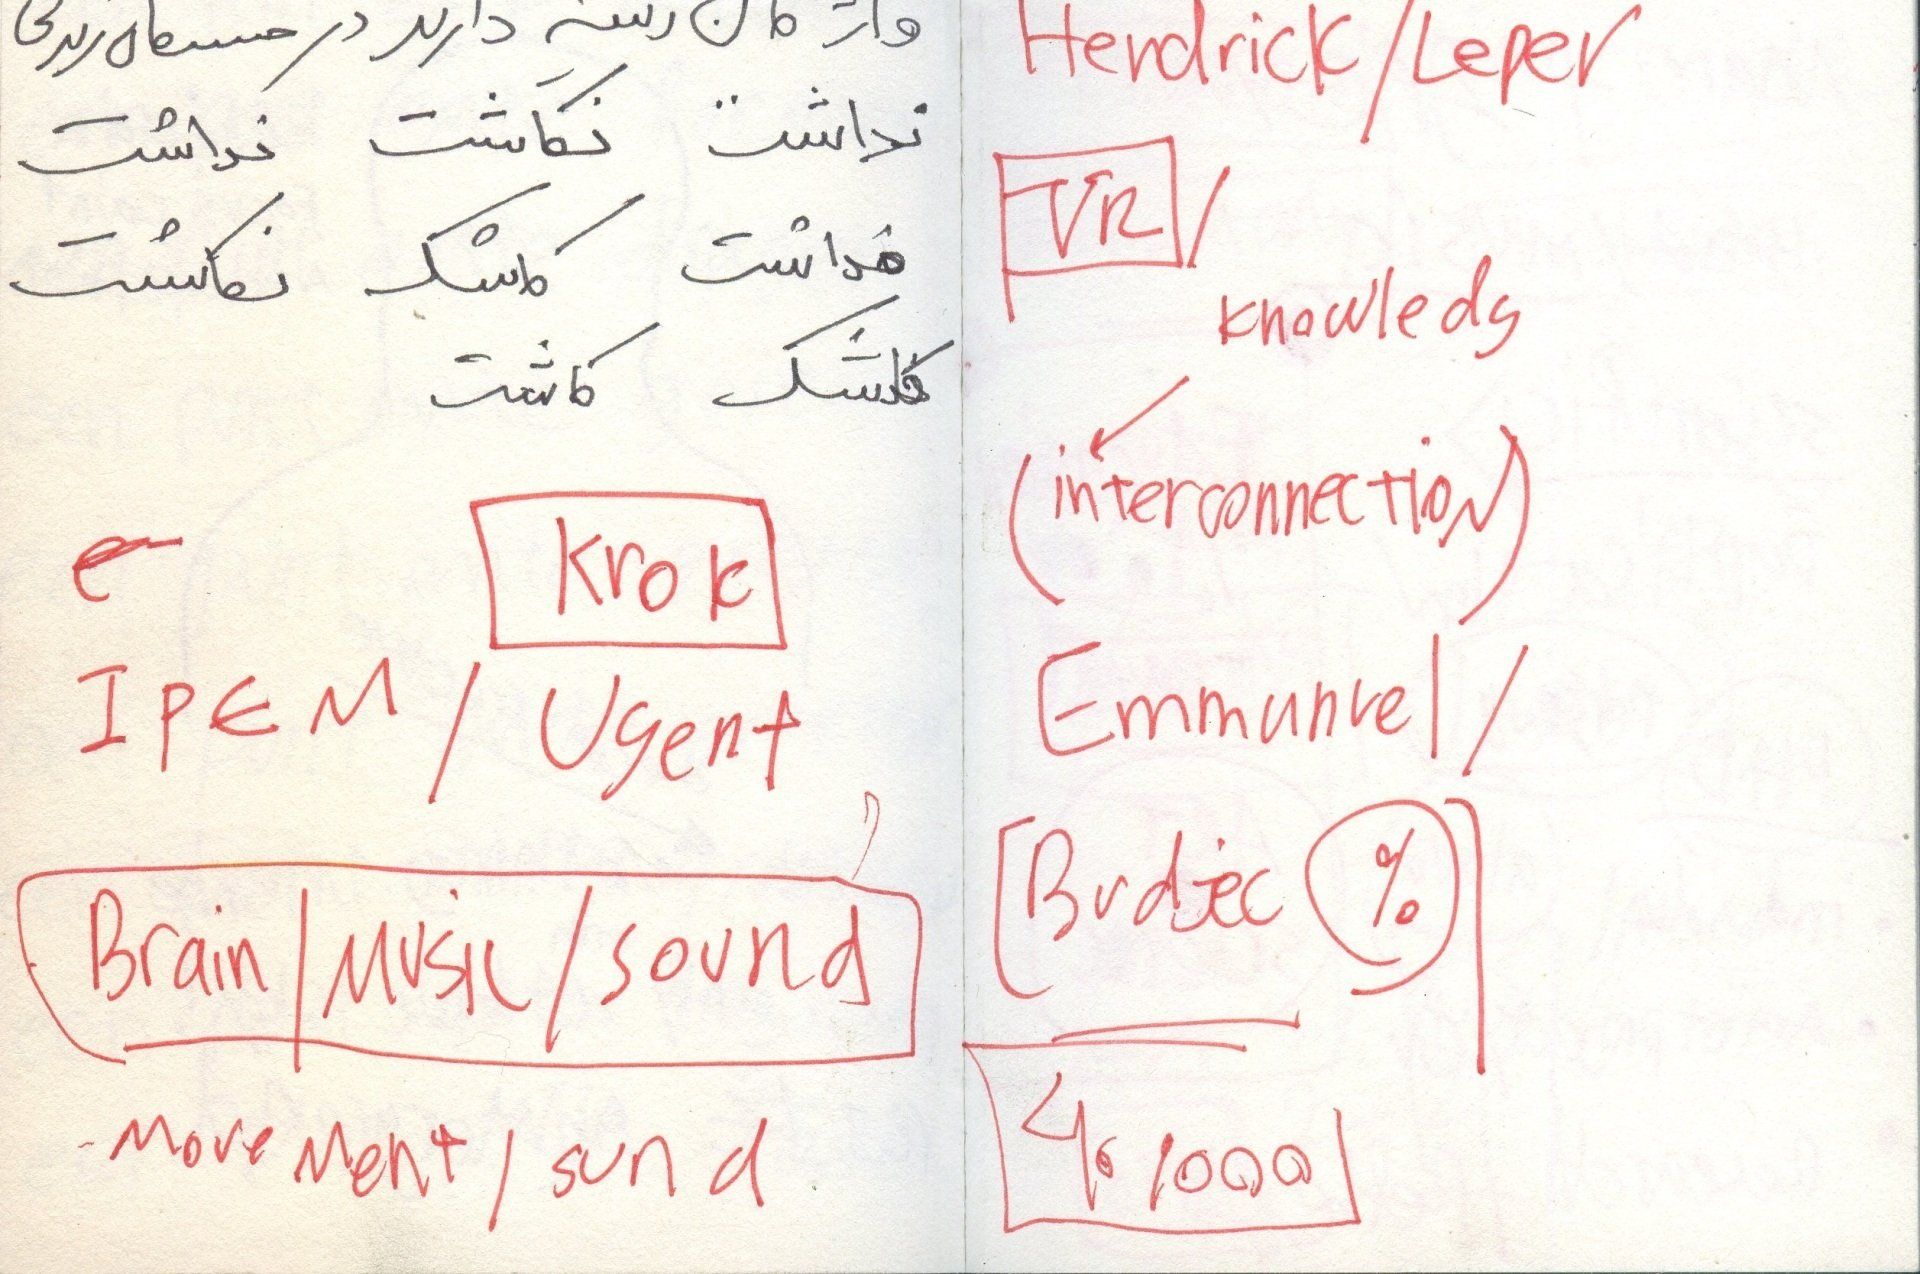 واژگان ریشه دارند در
نداشت نکاشت نداشت
نداشت کاشک نکاشت
کاشک کاشت
Krok
IPEM / Ugent
Brain / Music / sound
- Movement / sund
Hendrick / Leper
VR /
knowledg
(interconnection)
Emmunuel /
[Budjec %]
1000